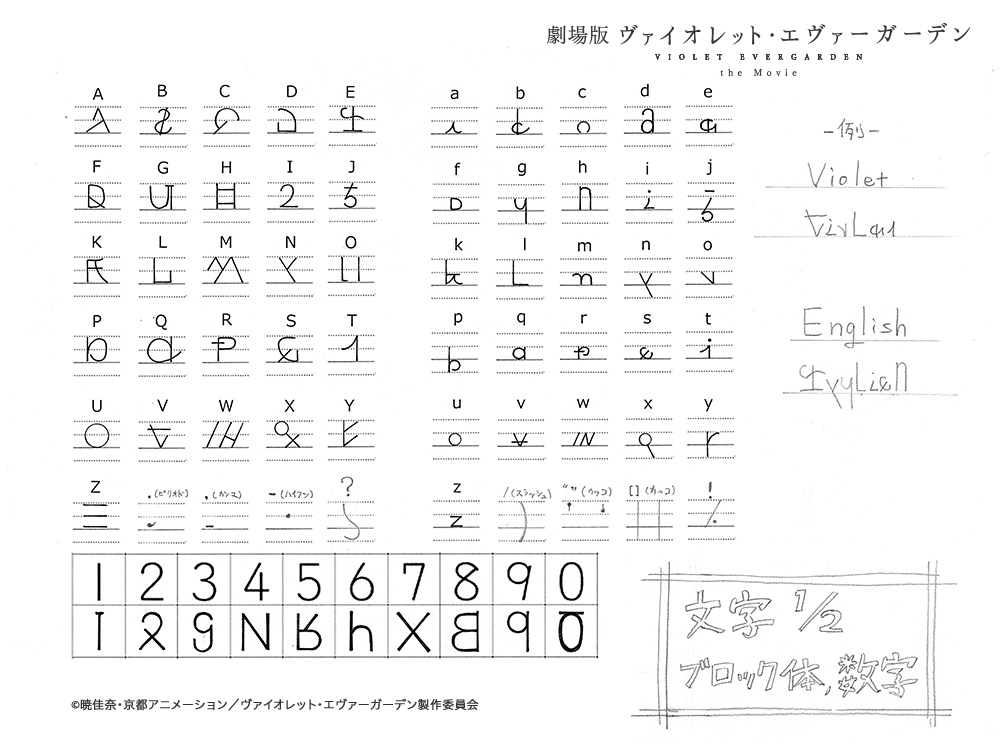 劇場版 ヴァイオレット・エヴァーガーデン
VIOLET EVERGARDEN
the Movie
A B C D E
a b c d e
F G H I J
f g h i j
K L M N O
k l m n o
P Q R S T
p q r s t
U V W X Y
u v w x y
Z .(ピリオド) ,(カンマ) -(ハイフン) ?
z /(スラッシュ) “”(カッコ) [](カッコ) !
-例-
Violet
English
1 2 3 4 5 6 7 8 9 0
文字 1/2
ブロック体,数字
©暁佳奈・京都アニメーション／ヴァイオレット・エヴァーガーデン製作委員会